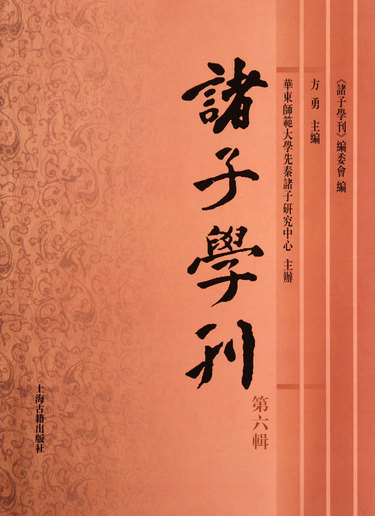 《諸子學刊》編委會 編
方 勇 主編
華東師範大學先秦諸子研究中心 主辦
諸子學刊
第六輯
上海古籍出版社